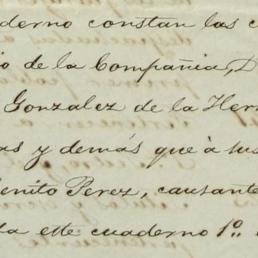 derno constan las c
o de la Compañia, D
Gonzalez de la Her
as y demás que à su
Benito Perez, causante
da este cuaderno 1º.